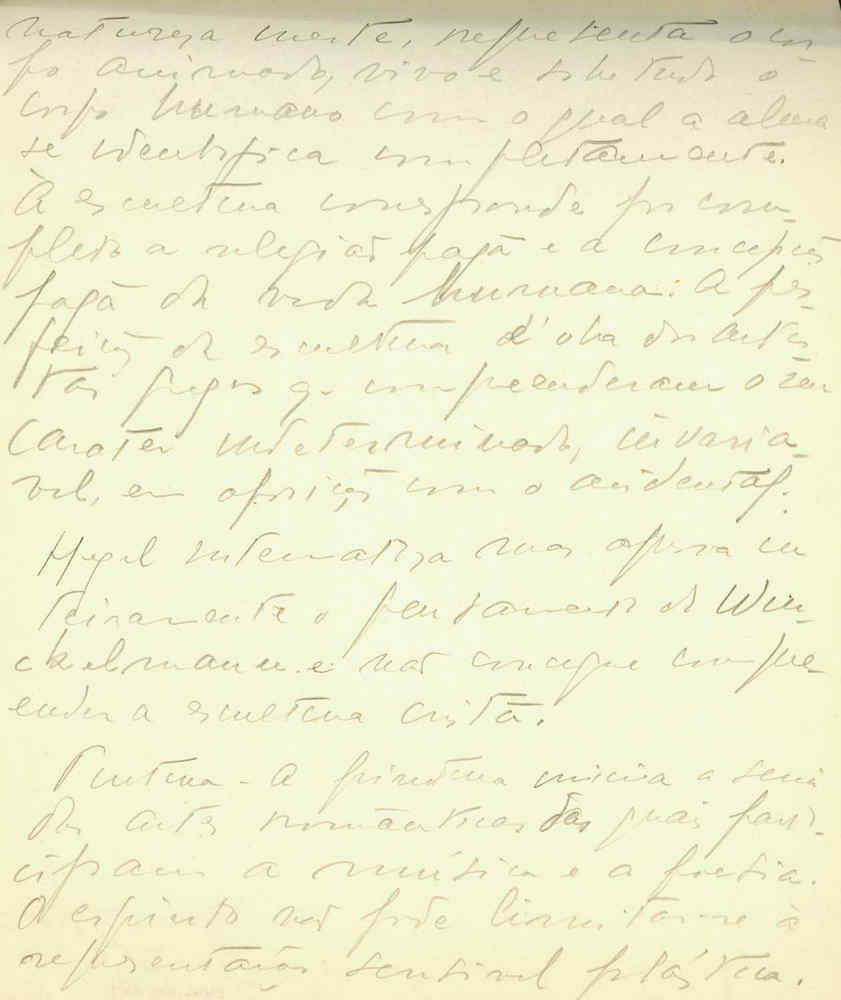 natureza inerte, representa o cor
po animado, vivo e sobretudo o
corpo humano com o qual a alma
se identifica completamente.
À escultura corresponde por com-
pleto a religião pagã e a concepção
pagã da vida humana. A per-
feição da escultura é obra dos artis
tas gregos q. compreenderam o seu
carater indeterminado, invaria-
vel, em oposição com o acidental.
Hegel sistematiza mas in
teiramente o pensamento de Win-
ckelmann e não consegue compre-
ender a escultura cristã.
Pintura - A pintura inicia a serie
das artes românticas das quais parti-
cipam a música e a poesia.
O espírito não pode limitar-se à
representação sensivel plástica.